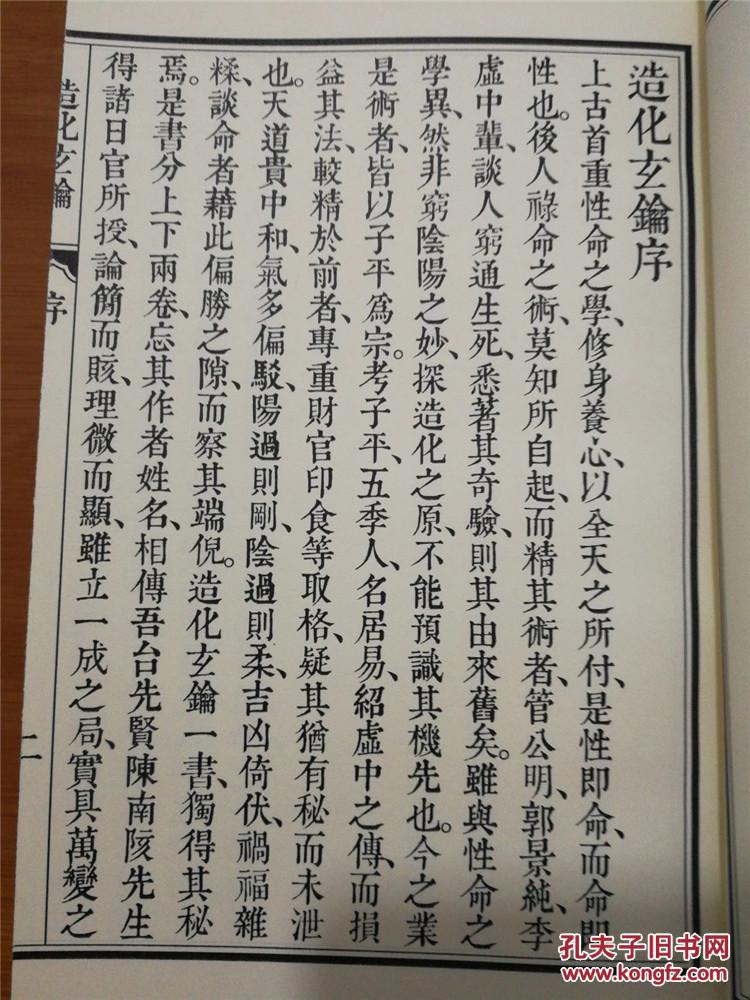 造化玄鑰序
上古首重性命之學、修身養心、以全天之所付、是性即命、而命即
性也。後人祿命之術、莫知所自起、而精其術者、管公明、郭景純、李
虛中輩、談人窮通生死、悉著其奇驗、則其由來舊矣。雖與性命之
學異、然非窮陰陽之妙、探造化之原、不能預識其機先也。今之業
是術者、皆以子平爲宗。考子平、五季人、名居易、紹虛中之傳、而損
益其法、較精於前者、專重財官印食等取格、疑其猶有秘而未泄
也。天道貴中和、氣多偏駁、陽過則剛、陰過則柔、吉凶倚伏、禍福雜
糅、談命者藉此偏勝之隙、而察其端倪。造化玄鑰一書、獨得其秘
焉。是書分上下兩卷、忘其作者姓名、相傳吾台先賢陳南陔先生
得諸日官所授、論簡而賅、理微而顯、雖立一成之局、實具萬變之
造化玄鑰
序
二
孔夫子旧书网
www.kongfz.com